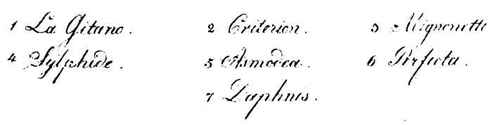 1 La Gitano. 2 Criterion. 3 Mignonette
4 Sylphide. 5 Asmodea. 6 Perfecta.
7 Daphnis.